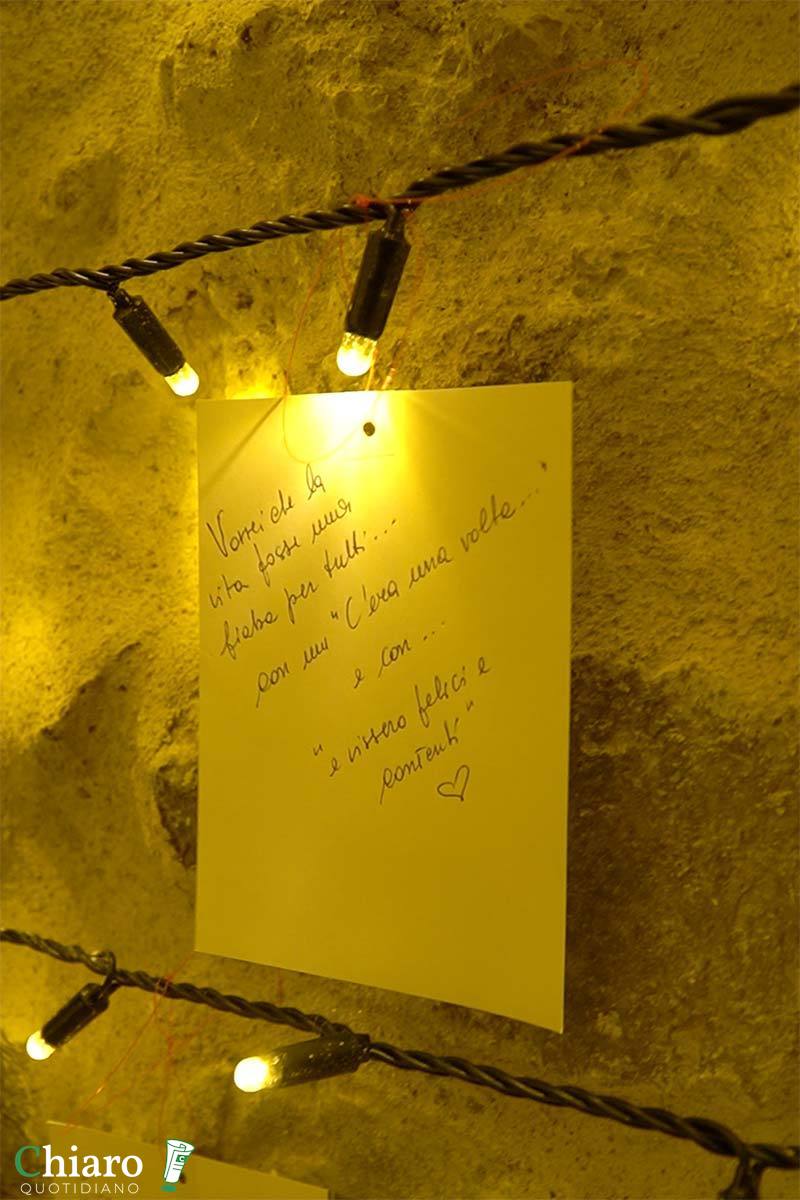 Vorrei che la
vita fosse una
fiaba per tutti...
con un "C'era una volta...
e con...
"e vissero felici e
contenti"
Chiaro
QUOTIDIANO